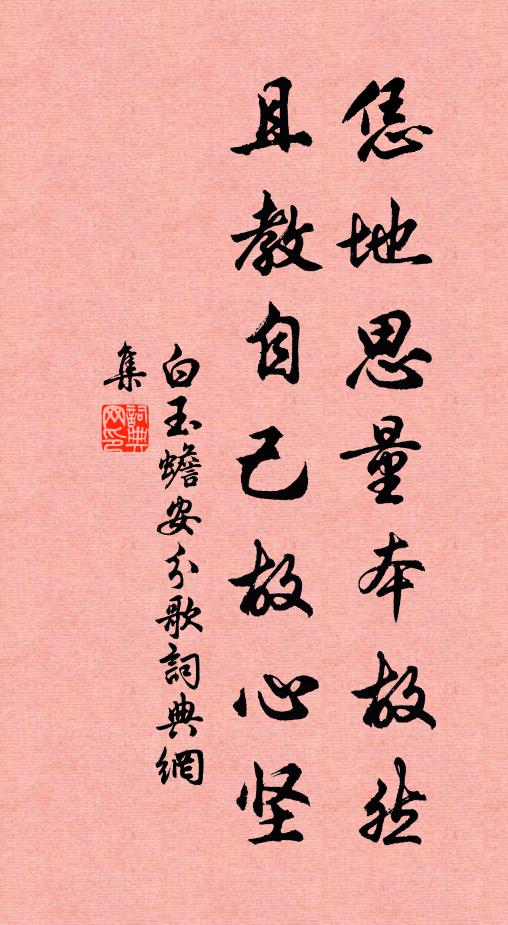 恁地思量本故然
且教自己故心坚
白玉蟾安分歌詞典網
集
詞典
网印